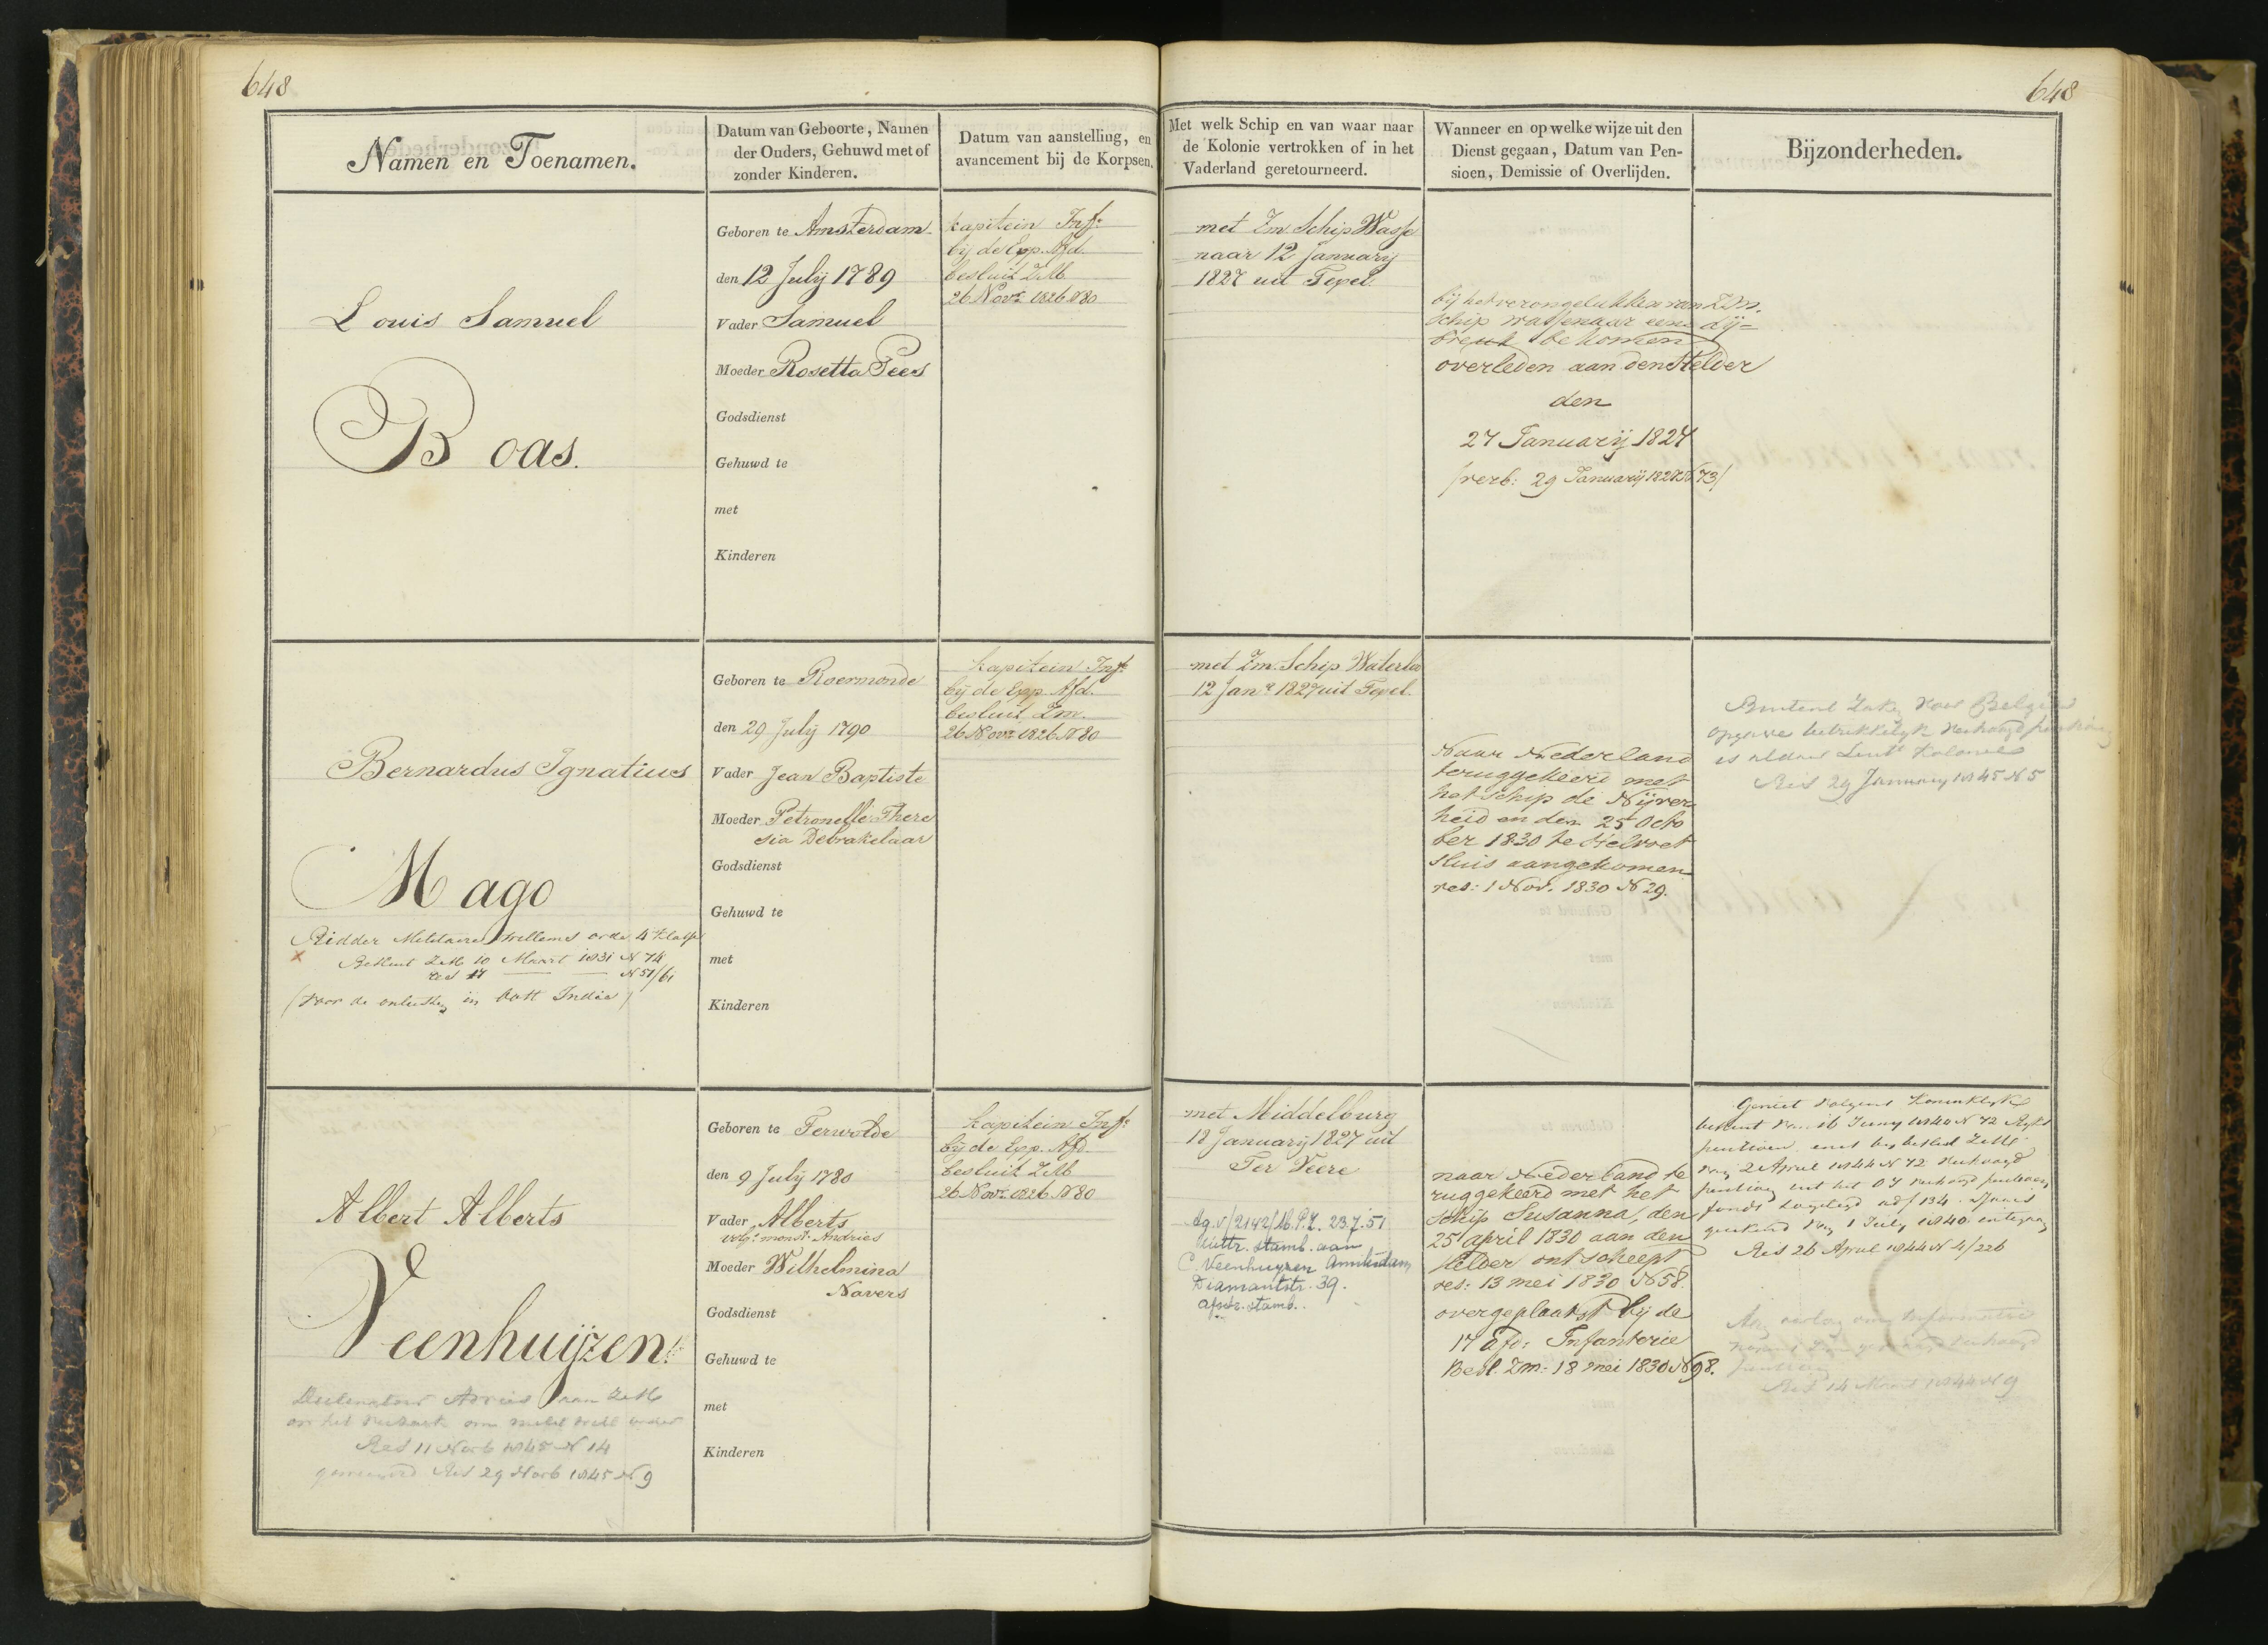 648
648
Namen en Toenamen.
Datum van Geboorte, Namen
der Ouders, Gehuwd met of
zonder Kinderen.
Datum van aanstelling, en
avancement bij de Korpsen.
Met welk Schip en van waar naar
de Kolonie vertrokken of in het
Vaderland geretourneerd.
Wanneer en op welke wijze uit den
Dienst gegaan, Datum van Pen-
sioen, Demissie of Overlijden.
Bijzonderheden.
Louis Samuel
Boas.
Geboren te Amsterdam
den 12 July 1789
Vader Samuel
Moeder Rosetta Pees
Godsdienst
Gehuwd te
met
Kinderen
kapitein Inf:
bij de Exp. Afd.
besluit ZM
26 Novr. 1826 N 80
met Zm Schip Wasse
naar 12 January
1827 uit Texel.
bij het verongelukken van ZDn.
schip Wassenaar eene dij=
breuk bekomen
overleden aan den Helder
den
27 Januarij 1827
/verb: 29 Januarij 1827 N 73/
Bernardus Ignatius
Mago
Ridder Militaire Willems orde 4e klasse
Besluit ZM 10 Maart 1831 N 74
res 17 — — N 51/61
(voor de onlusten in Oost Indie)
Geboren te Roermonde
den 29 July 1790
Vader Jean Baptiste
Moeder Petronelle There
sia Debrakelaar
Godsdienst
Gehuwd te
met
Kinderen
kapitein Inf:
bij de Exp. Afd.
besluit Zm.
26 Novr. 1826 N 80
met Zm. Schip Waterlo
12 Jan. 1827 uit Texel.
Naar Nederland
teruggekeerd met
het schip de Nijver
heid en den 25 Octo
ber 1830 te Helvoet
sluis aangekomen
res: 1 Nov. 1830 N 29.
Buitenl Zaken voor Belgie
opgave betrekkelijk
is aldaar Luit Kolonel
Res 29 January 1845 N 5
Albert Alberts
Veenhuijzen.
Res 11 Novb 1845 N 14
Res 29 Novb 1845 N 9
Geboren te Terwolde
den 9 July 1780
Vader Alberts
volgs. monst. Andries
Moeder Wilhelmina
Navers
Godsdienst
Gehuwd te
met
Kinderen
kapitein Inf:
bij de Exp. Afd.
besluit ZM
26 Novr. 1826 N 80
met Middelburg
18 Januarij 1827 uit
Ter Veere
Ag. v/2142/M.P.Z. 23.7.'51
Uittr. stamb. aan
C. Veenhuyzen Amsterdam
Diamantstr. 39.
afschr. stamb.
naar Nederland te
ruggekeerd met het
schip Susanna, den
25 april 1830 aan den
Helder ontscheept
res: 13 mei 1830 N 58.
overgeplaatst bij de
17 afd: Infanterie
Besl. Zm: 18 mei 1830 N 98.
Geniet volgens Koninklijk
besluit van 16 Juny 1840 N 72 Ryks
pensioen en bij besluit ZM
van 2 April 1844 N 72
fonds f 134
1 July 1840
Res 26 April 1844 N 4/226
Res 14 Maart 1844 N 9